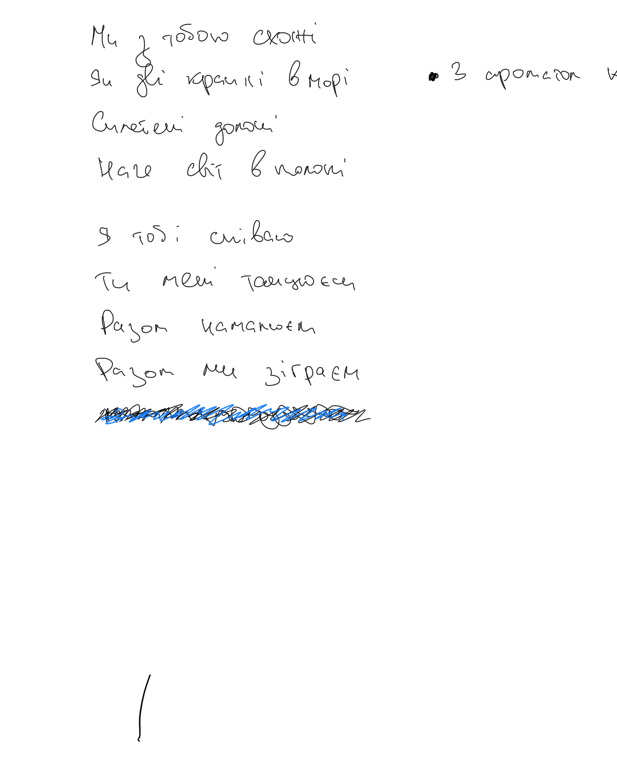 Ми з тобою схожі
Як дві краплі в морі
Сплетені долоні
Наче світ в полоні
Я тобі співаю
Ти мені танцюєш
Разом намалюєм
Разом ми зіграєм
• З ароматом